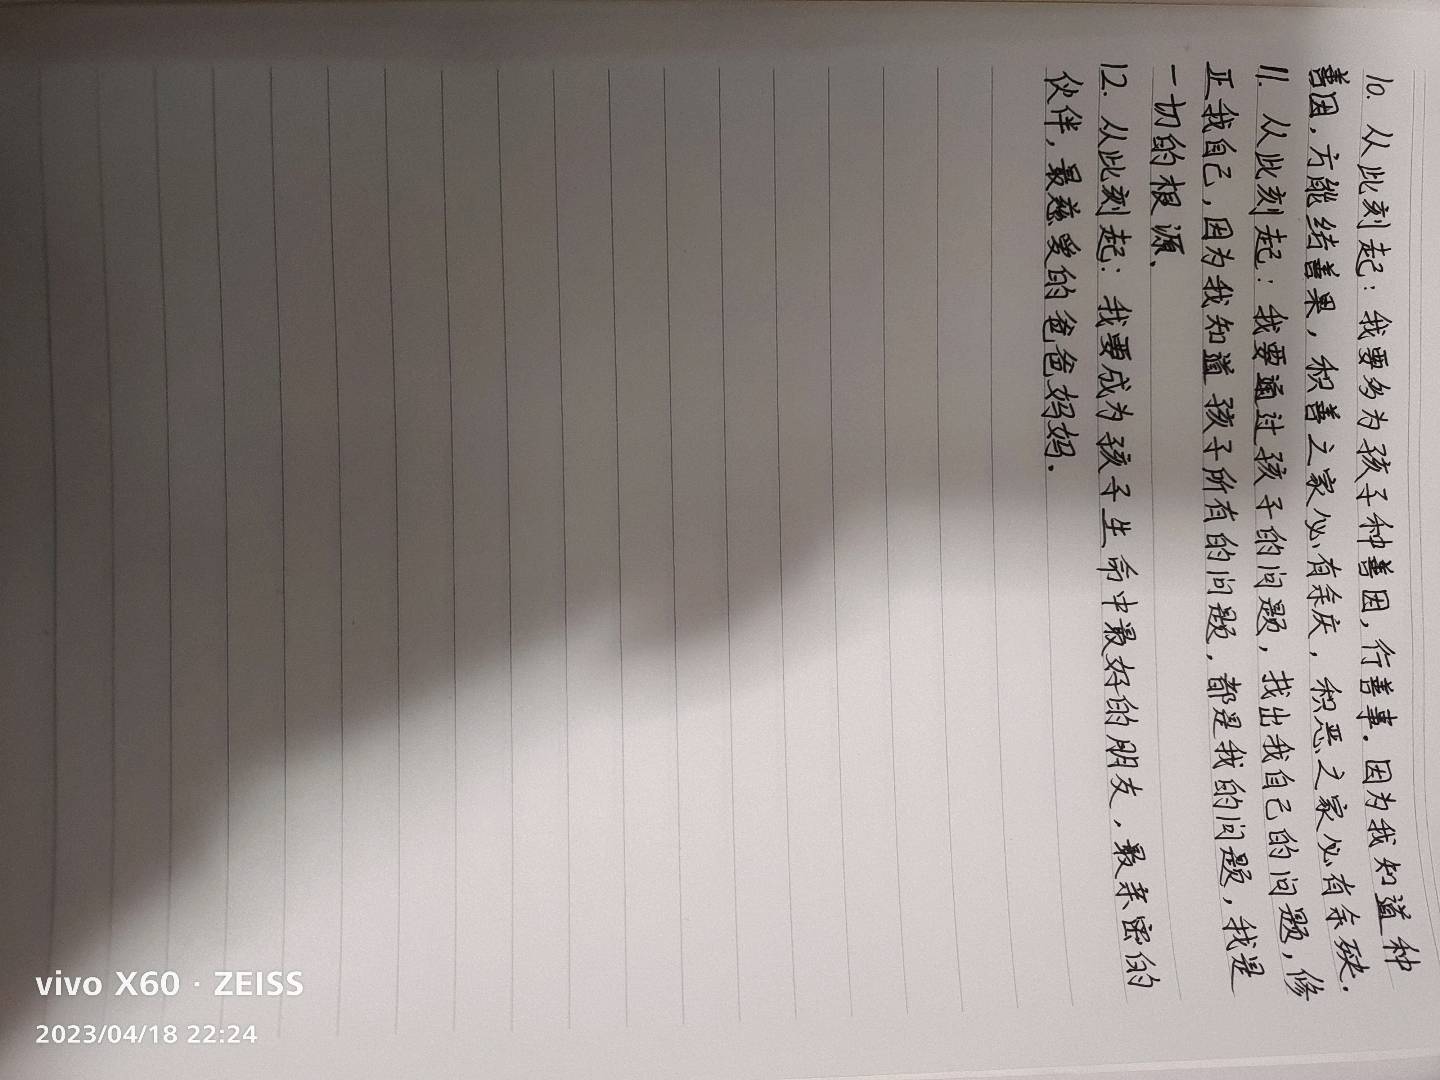 10. 从此刻起：我要多为孩子种善因，行善事。因为我知道种
善因，方能结善果，积善之家必有余庆，积恶之家必有余殃。
11. 从此刻起：我要通过孩子的问题，找出我自己的问题，修
正我自己，因为我知道孩子所有的问题，都是我的问题，我是
一切的根源、
12. 从此刻起：我要成为孩子生命中最好的朋友，最亲密的
伙伴，最慈爱的爸爸妈妈.
vivo X60 · ZEISS
2023/04/18 22:24